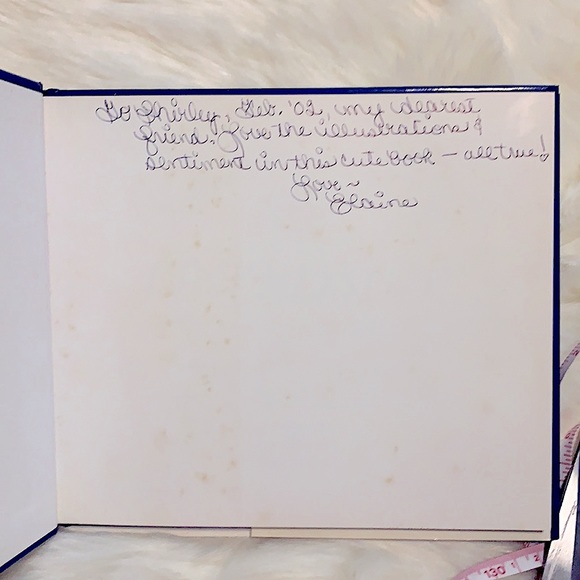 To Shirley, Feb. '02, my dearest
friend. Love the illustrations &
sentiment in this cute book — all true!
Love ~
Elaine
130